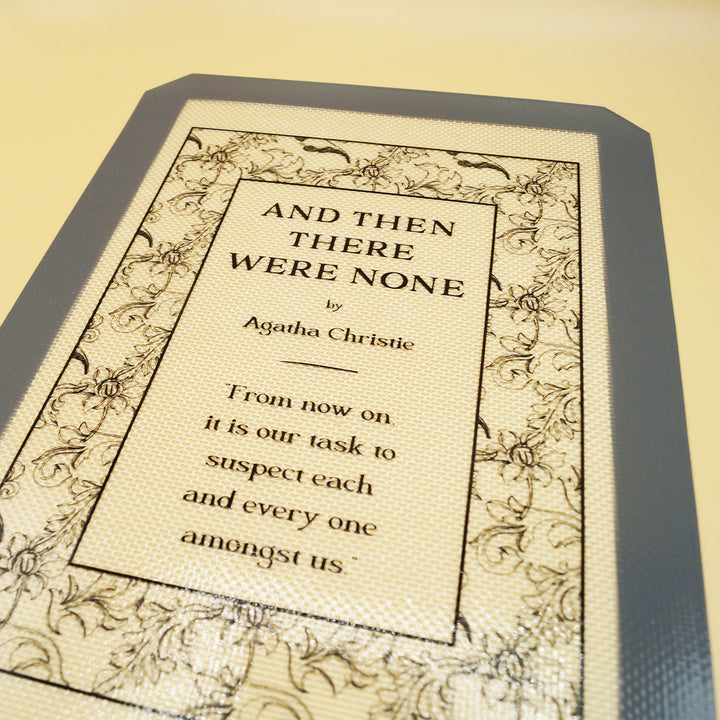 AND THEN
THERE
WERE NONE
by
Agatha Christie
"From now on,
it is our task to
suspect each
and every one
amongst us."